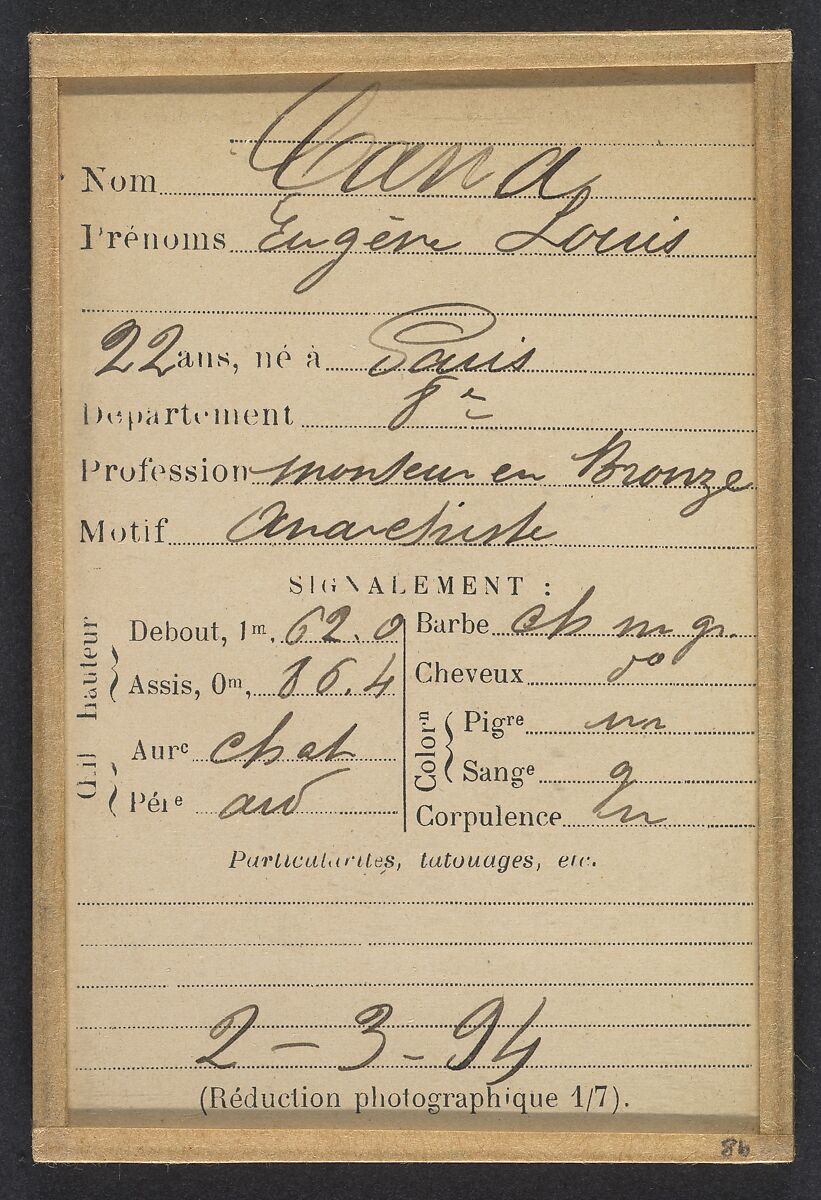 Nom Cana
Prénoms Eugène Louis
22 ans, né à Paris
Département 8e
Profession monteur en Bronze
Motif Anarchiste
SIGNALEMENT :
Œil hauteur
Debout, 1m, 62.0
Assis, 0m, 86.4
Aure chat
Pére ard
Barbe ch m gr.
Cheveux do
Colorn
Pigre m
Sange g
Corpulence m
Particularités, tatouages, etc.
2-3-94
(Réduction photographique 1/7).